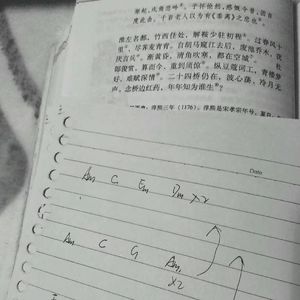 度此曲。千岩老人以为有《黍离》之悲也
淮左名都，竹西佳处，解鞍少驻初程。过春风十
里，尽荠麦青青。自胡马窥江去后，废池乔木，
犹厌言兵。渐黄昏，清角吹寒，都在空城。 杜
郎俊赏，算而今、重到须惊。纵豆蔻词工，青楼梦
好，难赋深情。二十四桥仍在，波心荡、冷月无
声。念桥边红药，年年知为谁生？
Date
Am C Em Dm x2
Am C G Am
x2